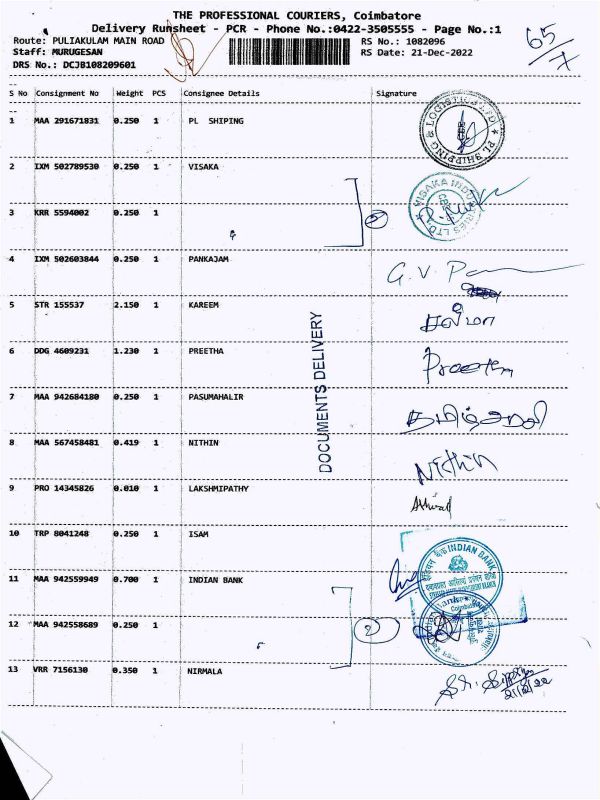 THE PROFESSIONAL COURIERS, Coimbatore
Delivery Runsheet - PCR - Phone No.:0422-3505555 - Page No.:1
65/x
Route: PULIAKULAM MAIN ROAD RS No.: 1082096
Staff: MURUGESAN RS Date: 21-Dec-2022
DRS No.: DCJB108209601
S No Consignment No Weight PCS Consignee Details Signature
1 MAA 291671831 0.250 1 PL SHIPING
PL SHIPPING & LOGISTICS LTD
2 IXM 502789530 0.250 1 VISAKA
VISAKA INDUSTRIES LTD
3 KRR 5594002 0.250 1
2
4 IXM 502603844 0.250 1 PANKAJAM G.V.
5 STR 155537 2.150 1 KAREEM சல்மா
6 DDG 4609231 1.230 1 PREETHA Preetha
DOCUMENTS DELIVERY
7 MAA 942684180 0.250 1 PASUMAHALIR
8 MAA 567458481 0.419 1 NITHIN Nithin
9 PRO 14345826 0.010 1 LAKSHMIPATHY
10 TRP 8041248 0.250 1 ISAM
इंडियन बैंक INDIAN BANK
11 MAA 942559949 0.700 1 INDIAN BANK
12 MAA 942558689 0.250 1
2
13 VRR 7156130 0.350 1 NIRMALA
21/12/22